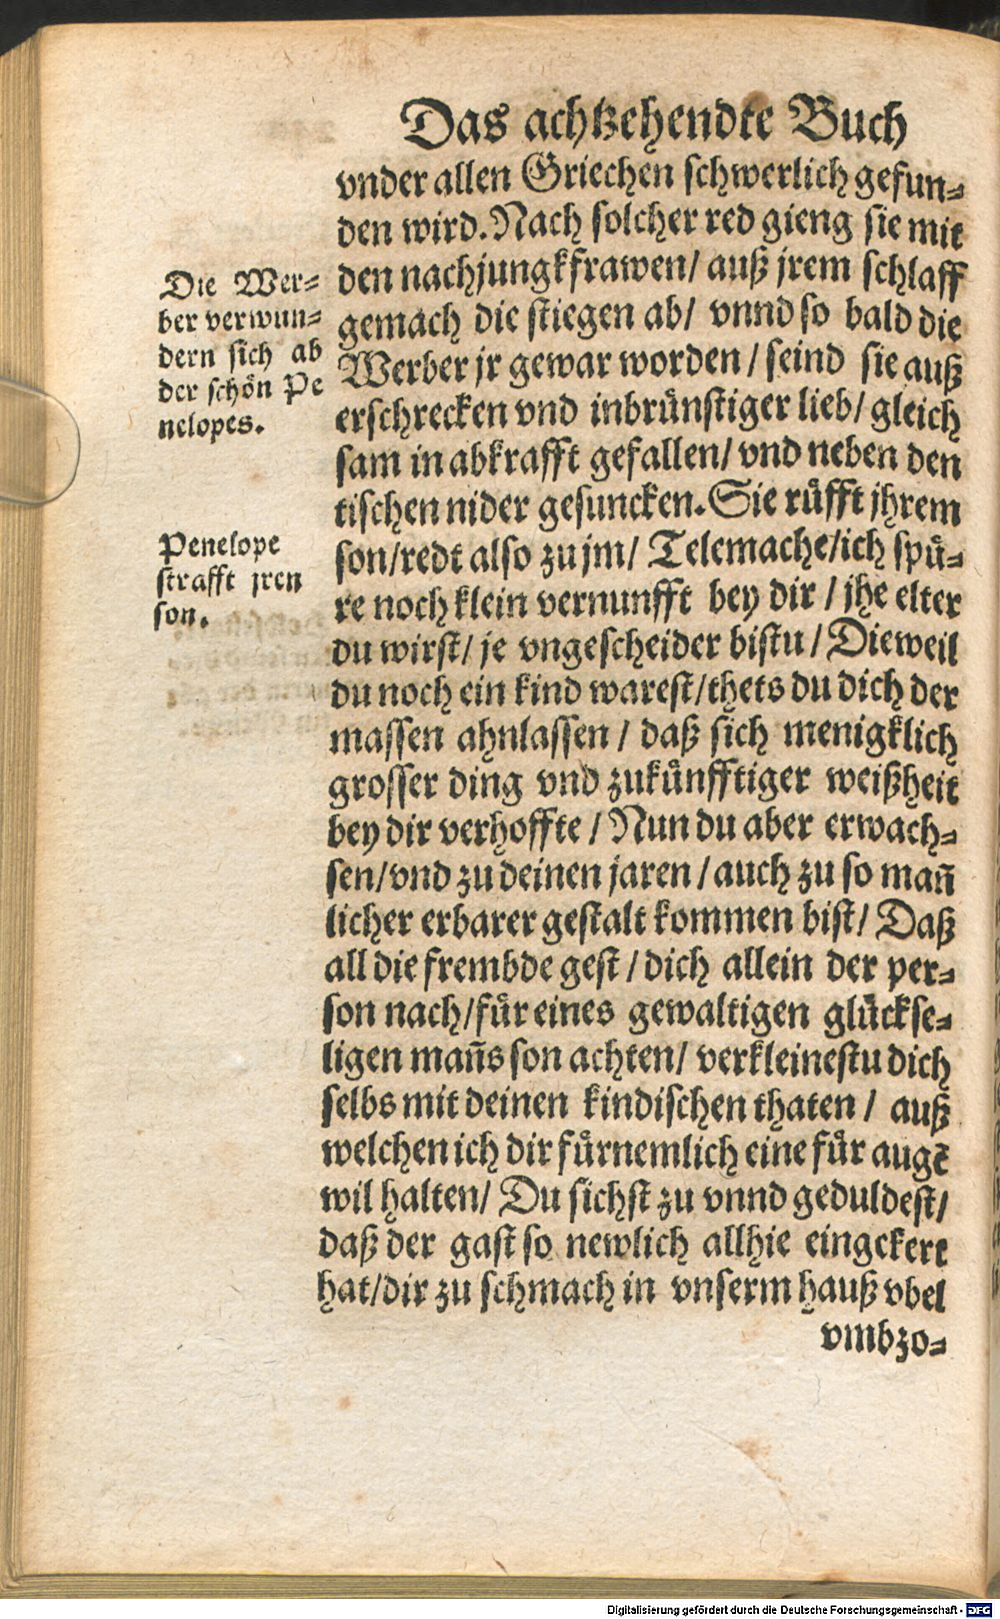 Das achtzehendte Buch
vnder allen Griechen schwerlich gefun-
den wird. Nach solcher red gieng sie mit
den nachjungkfrawen/ auß jrem schlaff
gemach die stiegen ab/ vnnd so bald die
Werber jr gewar worden/ seind sie auß
erschrecken vnd inbrünstiger lieb/ gleich
sam in abkrafft gefallen/ vnd neben den
tischen nider gesuncken. Sie rüfft jhrem
son/redt also zu jm/ Telemache/ich spü-
re noch klein vernunfft bey dir / jhe elter
du wirst/ je vngescheider bistu / Dieweil
du noch ein kind warest/thets du dich der
massen ahnlassen / daß sich menigklich
grosser ding vnd zukünfftiger weißheit
bey dir verhoffte / Nun du aber erwach-
sen/vnd zu deinen jaren / auch zu so mañ
licher erbarer gestalt kommen bist/ Daß
all die frembde gest / dich allein der per-
son nach/für eines gewaltigen glückse-
ligen mañs son achten/ verkleinestu dich
selbs mit deinen kindischen thaten / auß
welchen ich dir fürnemlich eine für augẽ
wil halten/ Du sichst zu vnnd geduldest/
daß der gast so newlich allhie eingekert
hat/dir zu schmach in vnserm hauß vbel
vmbzo-
Die Wer-
ber verwun-
dern sich ab
der schön Pe
nelopes.
Penelope
strafft jren
son.
Digitalisierung gefördert durch die Deutsche Forschungsgemeinschaft - DFG